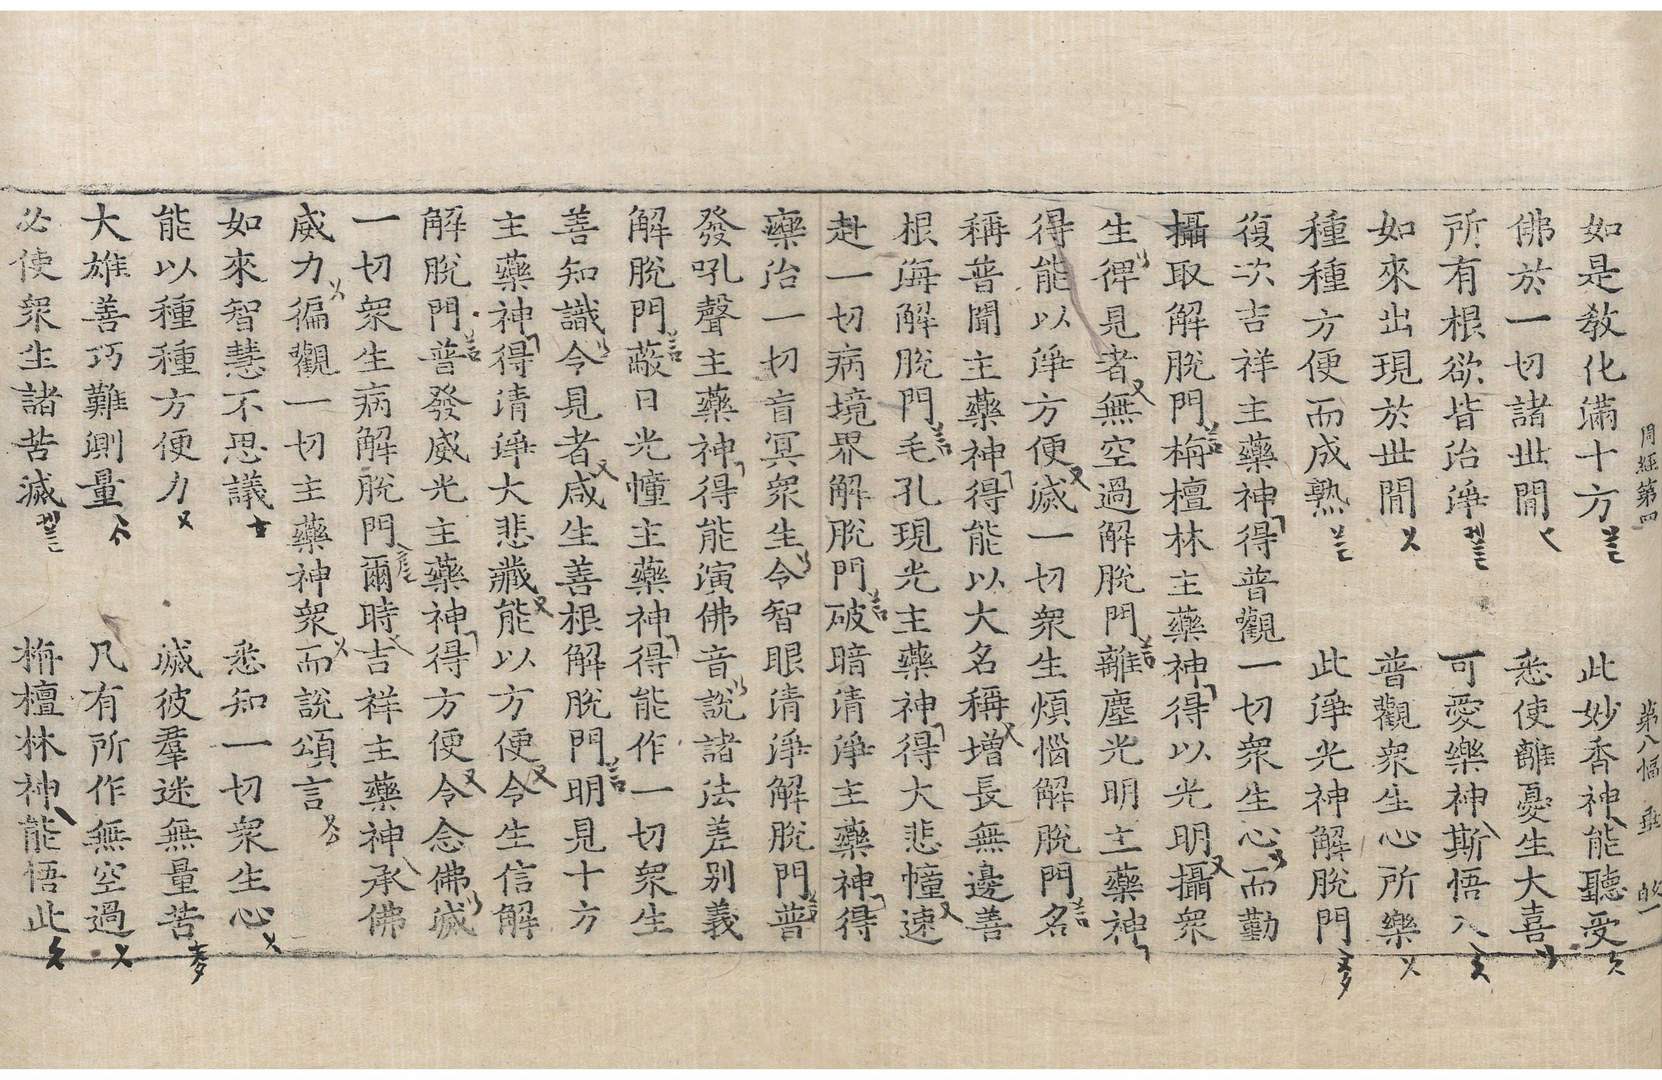 周經第四　第八幅
如是教化滿十方　此妙香神能聽受
佛於一切諸世閒　悉使離憂生大喜
所有根欲皆治淨　可愛樂神斯悟入
如來出現於世閒　普觀衆生心所樂
種種方便而成熟　此淨光神解脫門
復次吉祥主藥神得普觀一切衆生心而勤
攝取解脫門栴檀林主藥神得以光明攝衆
生俾見者無空過解脫門離塵光明主藥神
得能以淨方便滅一切衆生煩惱解脫門名
稱普聞主藥神得能以大名稱增長無邊善
根海解脫門毛孔現光主藥神得大悲幢速
赴一切病境界解脫門破暗清淨主藥神得
療治一切盲冥衆生令智眼清淨解脫門普
發吼聲主藥神得能演佛音說諸法差別義
解脫門蔽日光幢主藥神得能作一切衆生
善知識令見者咸生善根解脫門明見十方
主藥神得清淨大悲藏能以方便令生信解
解脫門普發威光主藥神得方便令念佛滅
一切衆生病解脫門爾時吉祥主藥神承佛
威力徧觀一切主藥神衆而說頌言
如來智慧不思議　悉知一切衆生心
能以種種方便力　滅彼羣迷無量苦
大雄善巧難測量　凡有所作無空過
必使衆生諸苦滅　栴檀林神能悟此